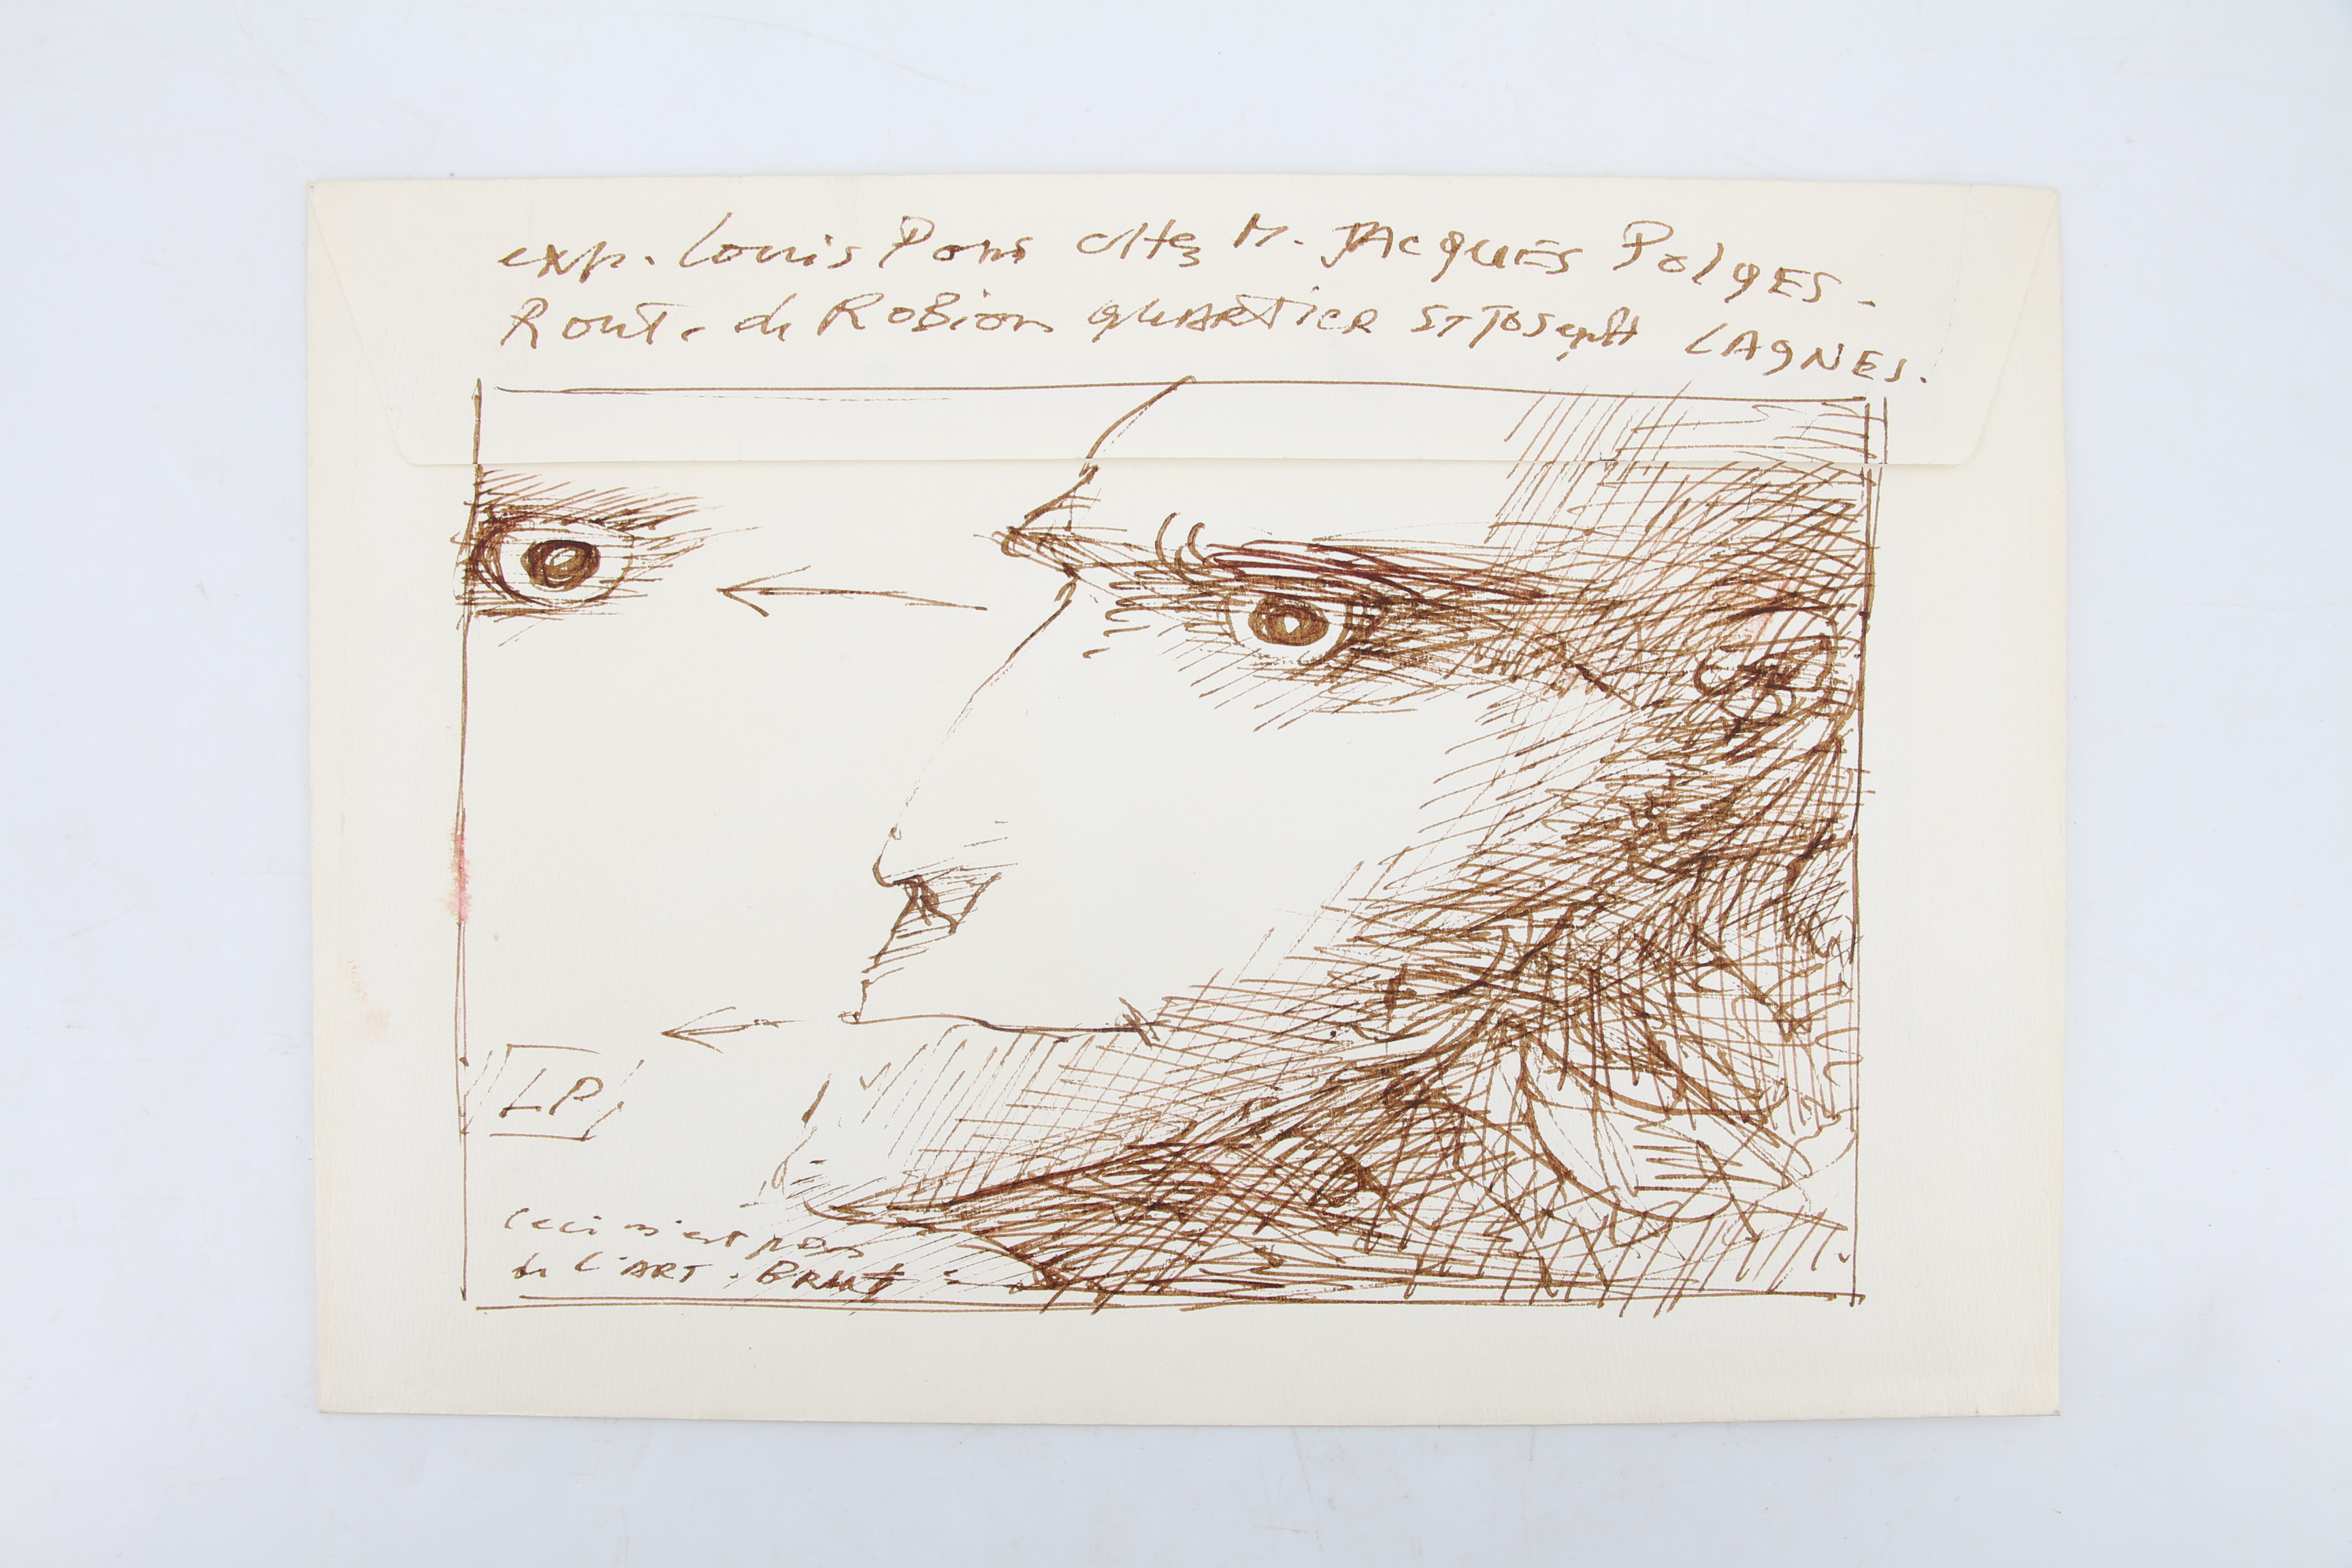 exp. Louis Pons chez M. JACQUES PolgES -
Route de RoBion QUARTIER ST JOSEPH LAGNES.
LP
Ceci n'est pas
de l'ART. BRUT